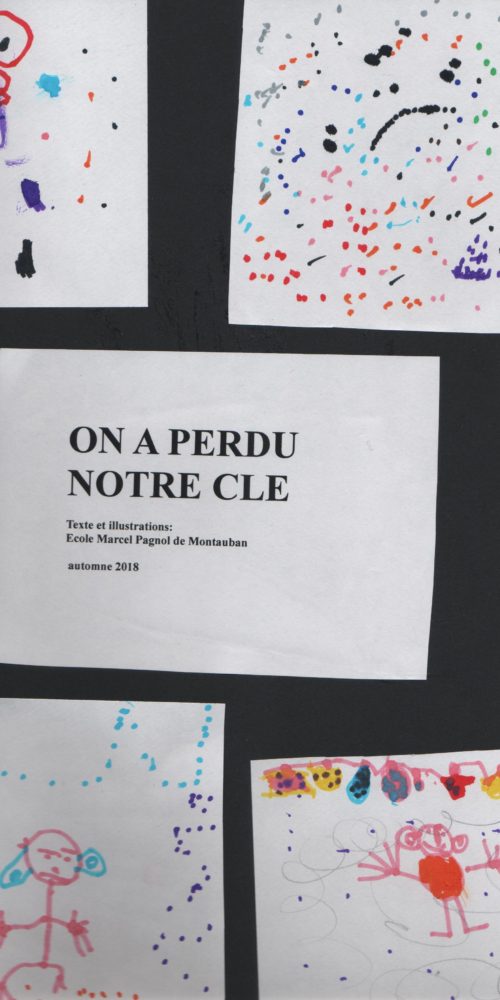 ON A PERDU
NOTRE CLE
Texte et illustrations:
Ecole Marcel Pagnol de Montauban
automne 2018